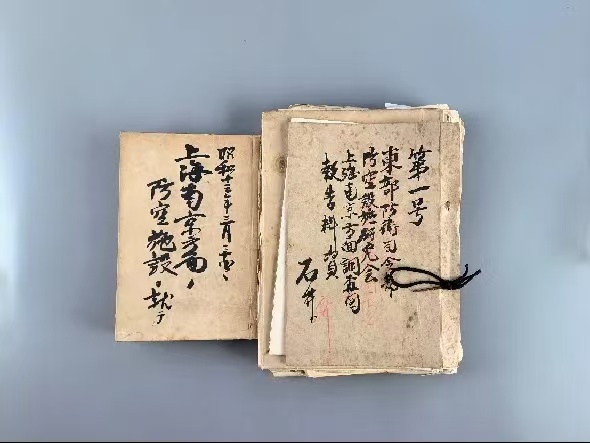 第一号
東部防衛司令部
防空設施研究会
上海南京方面調査団
報告料資
石井
昭和十三年三月
上海南京方面ノ
防空施設ニ就テ